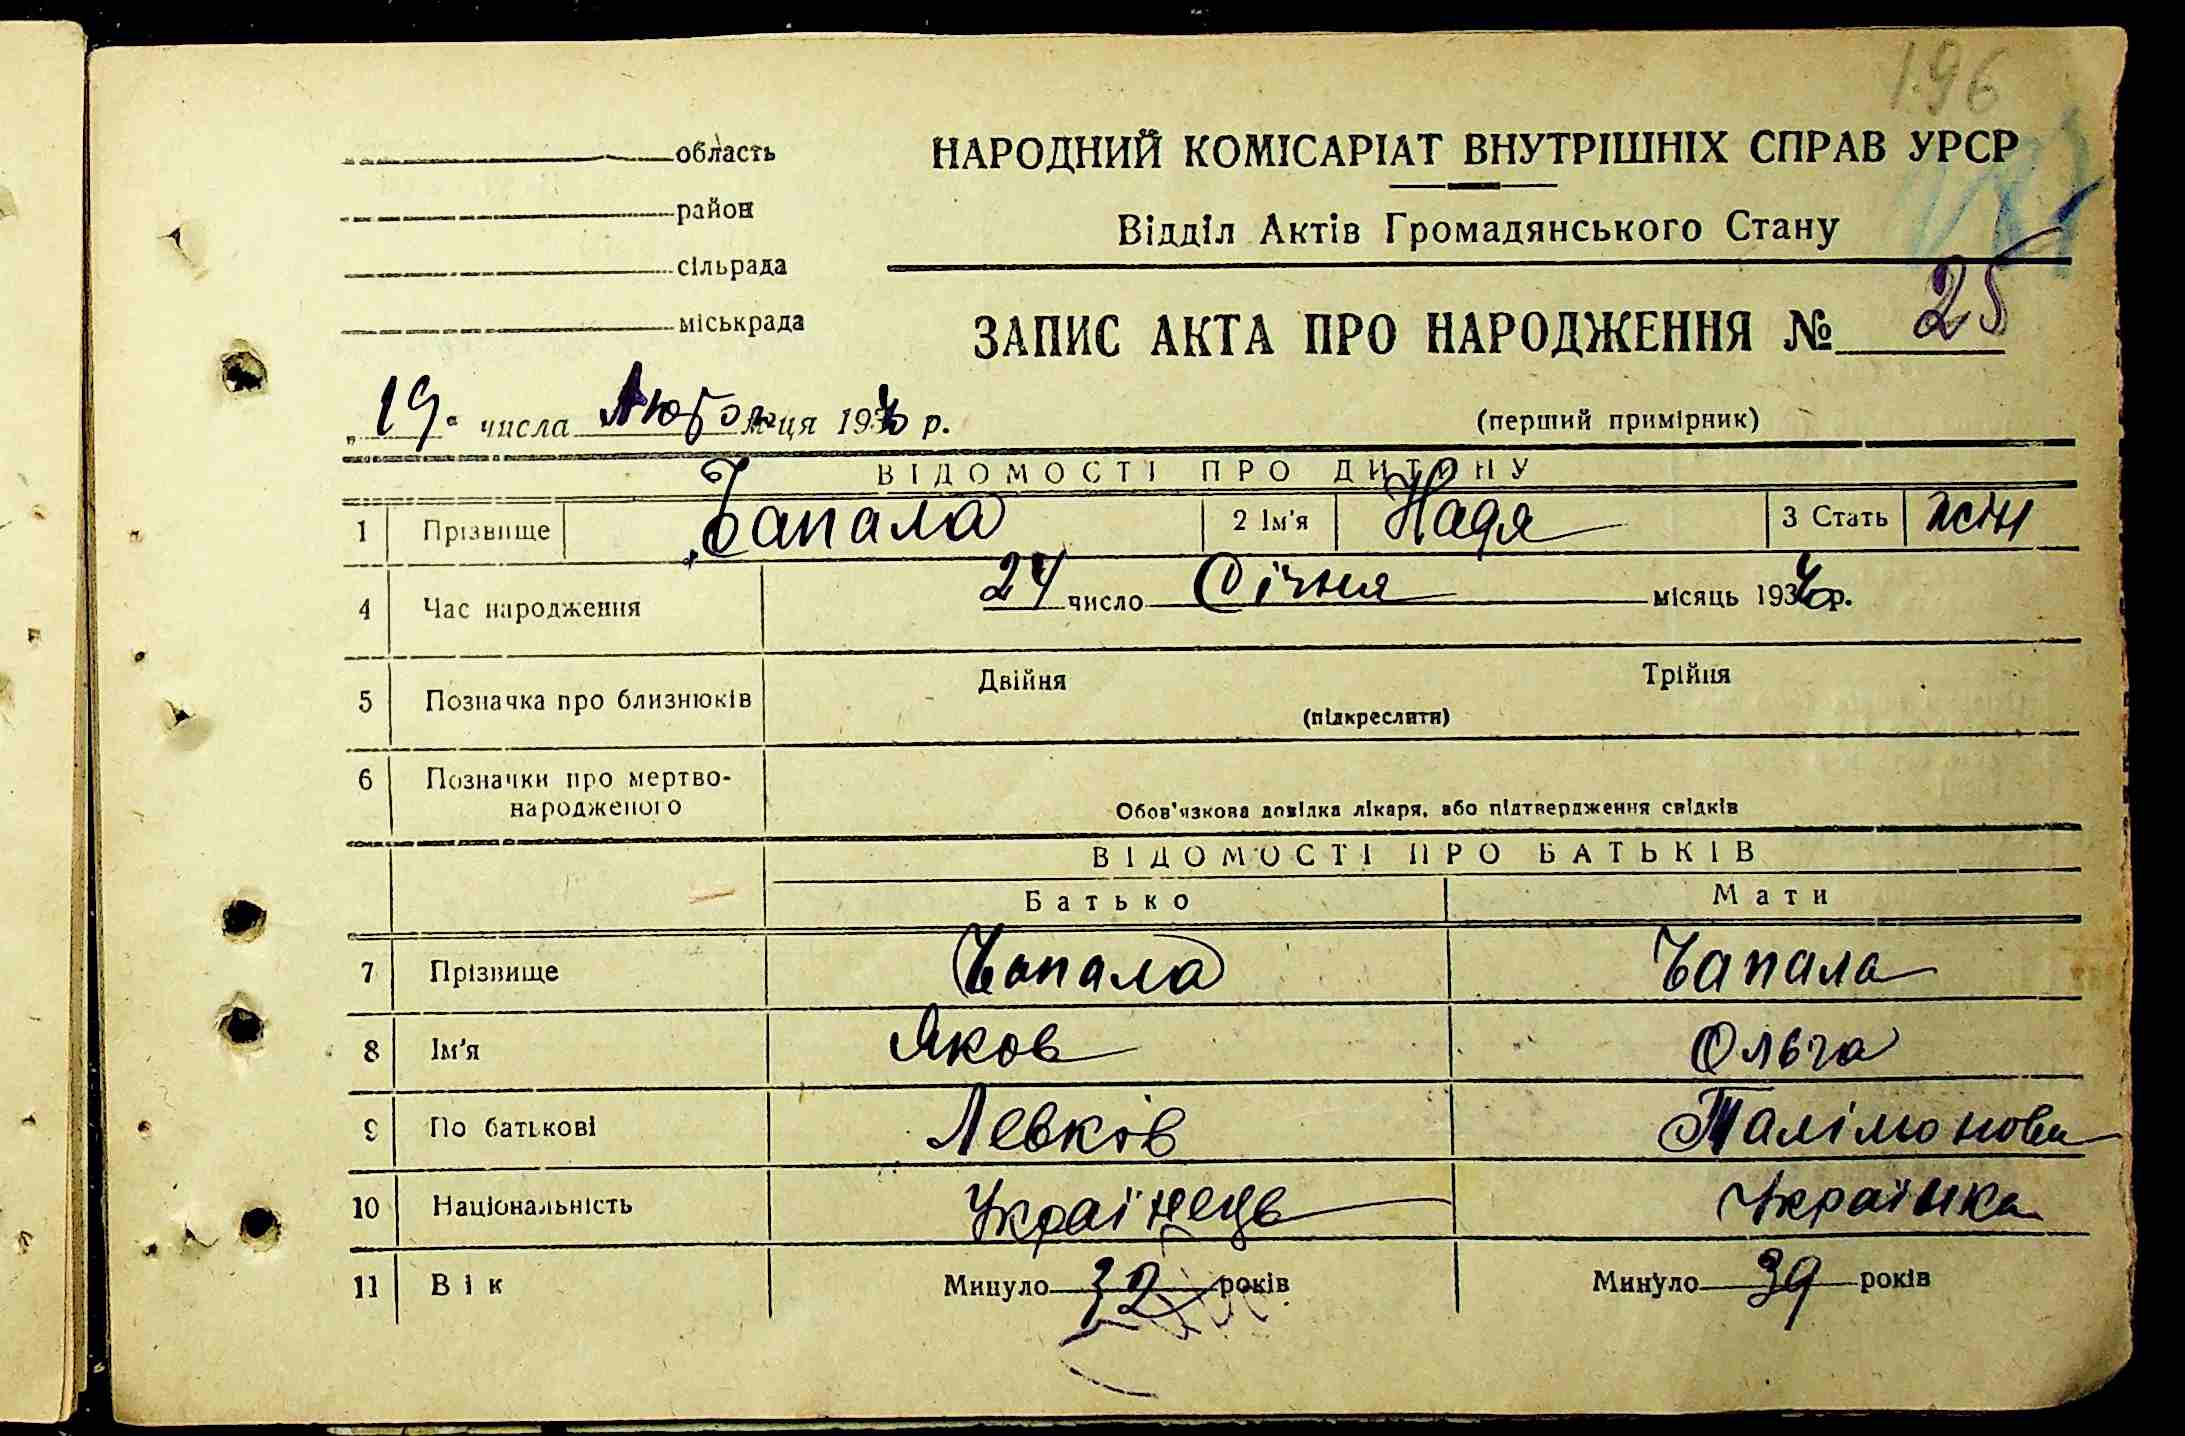 196
область
район
сільрада
міськрада
НАРОДНИЙ КОМІСАРІАТ ВНУТРІШНІХ СПРАВ УРСР
Відділ Актів Громадянського Стану
ЗАПИС АКТА ПРО НАРОДЖЕННЯ № 25
„19“ числа Лютого м-ця 193 р.
(перший примірник)
ВІДОМОСТІ ПРО ДИТИНУ
1 Прізвище Чапала 2 Ім'я Надя 3 Стать жін
4 Час народження 24 число Січня місяць 193 р.
5 Позначка про близнюків Двійня Трійня
(підкреслити)
6 Позначки про мертво-
народженого
Обов'язкова довідка лікаря, або підтвердження свідків
ВІДОМОСТІ ПРО БАТЬКІВ
Батько Мати
7 Прізвище Чапала Чапала
8 Ім'я Яков Ольга
9 По батькові Левков Талімонови
10 Національність Українець Українка
11 Вік Минуло 32 років Минуло 39 років